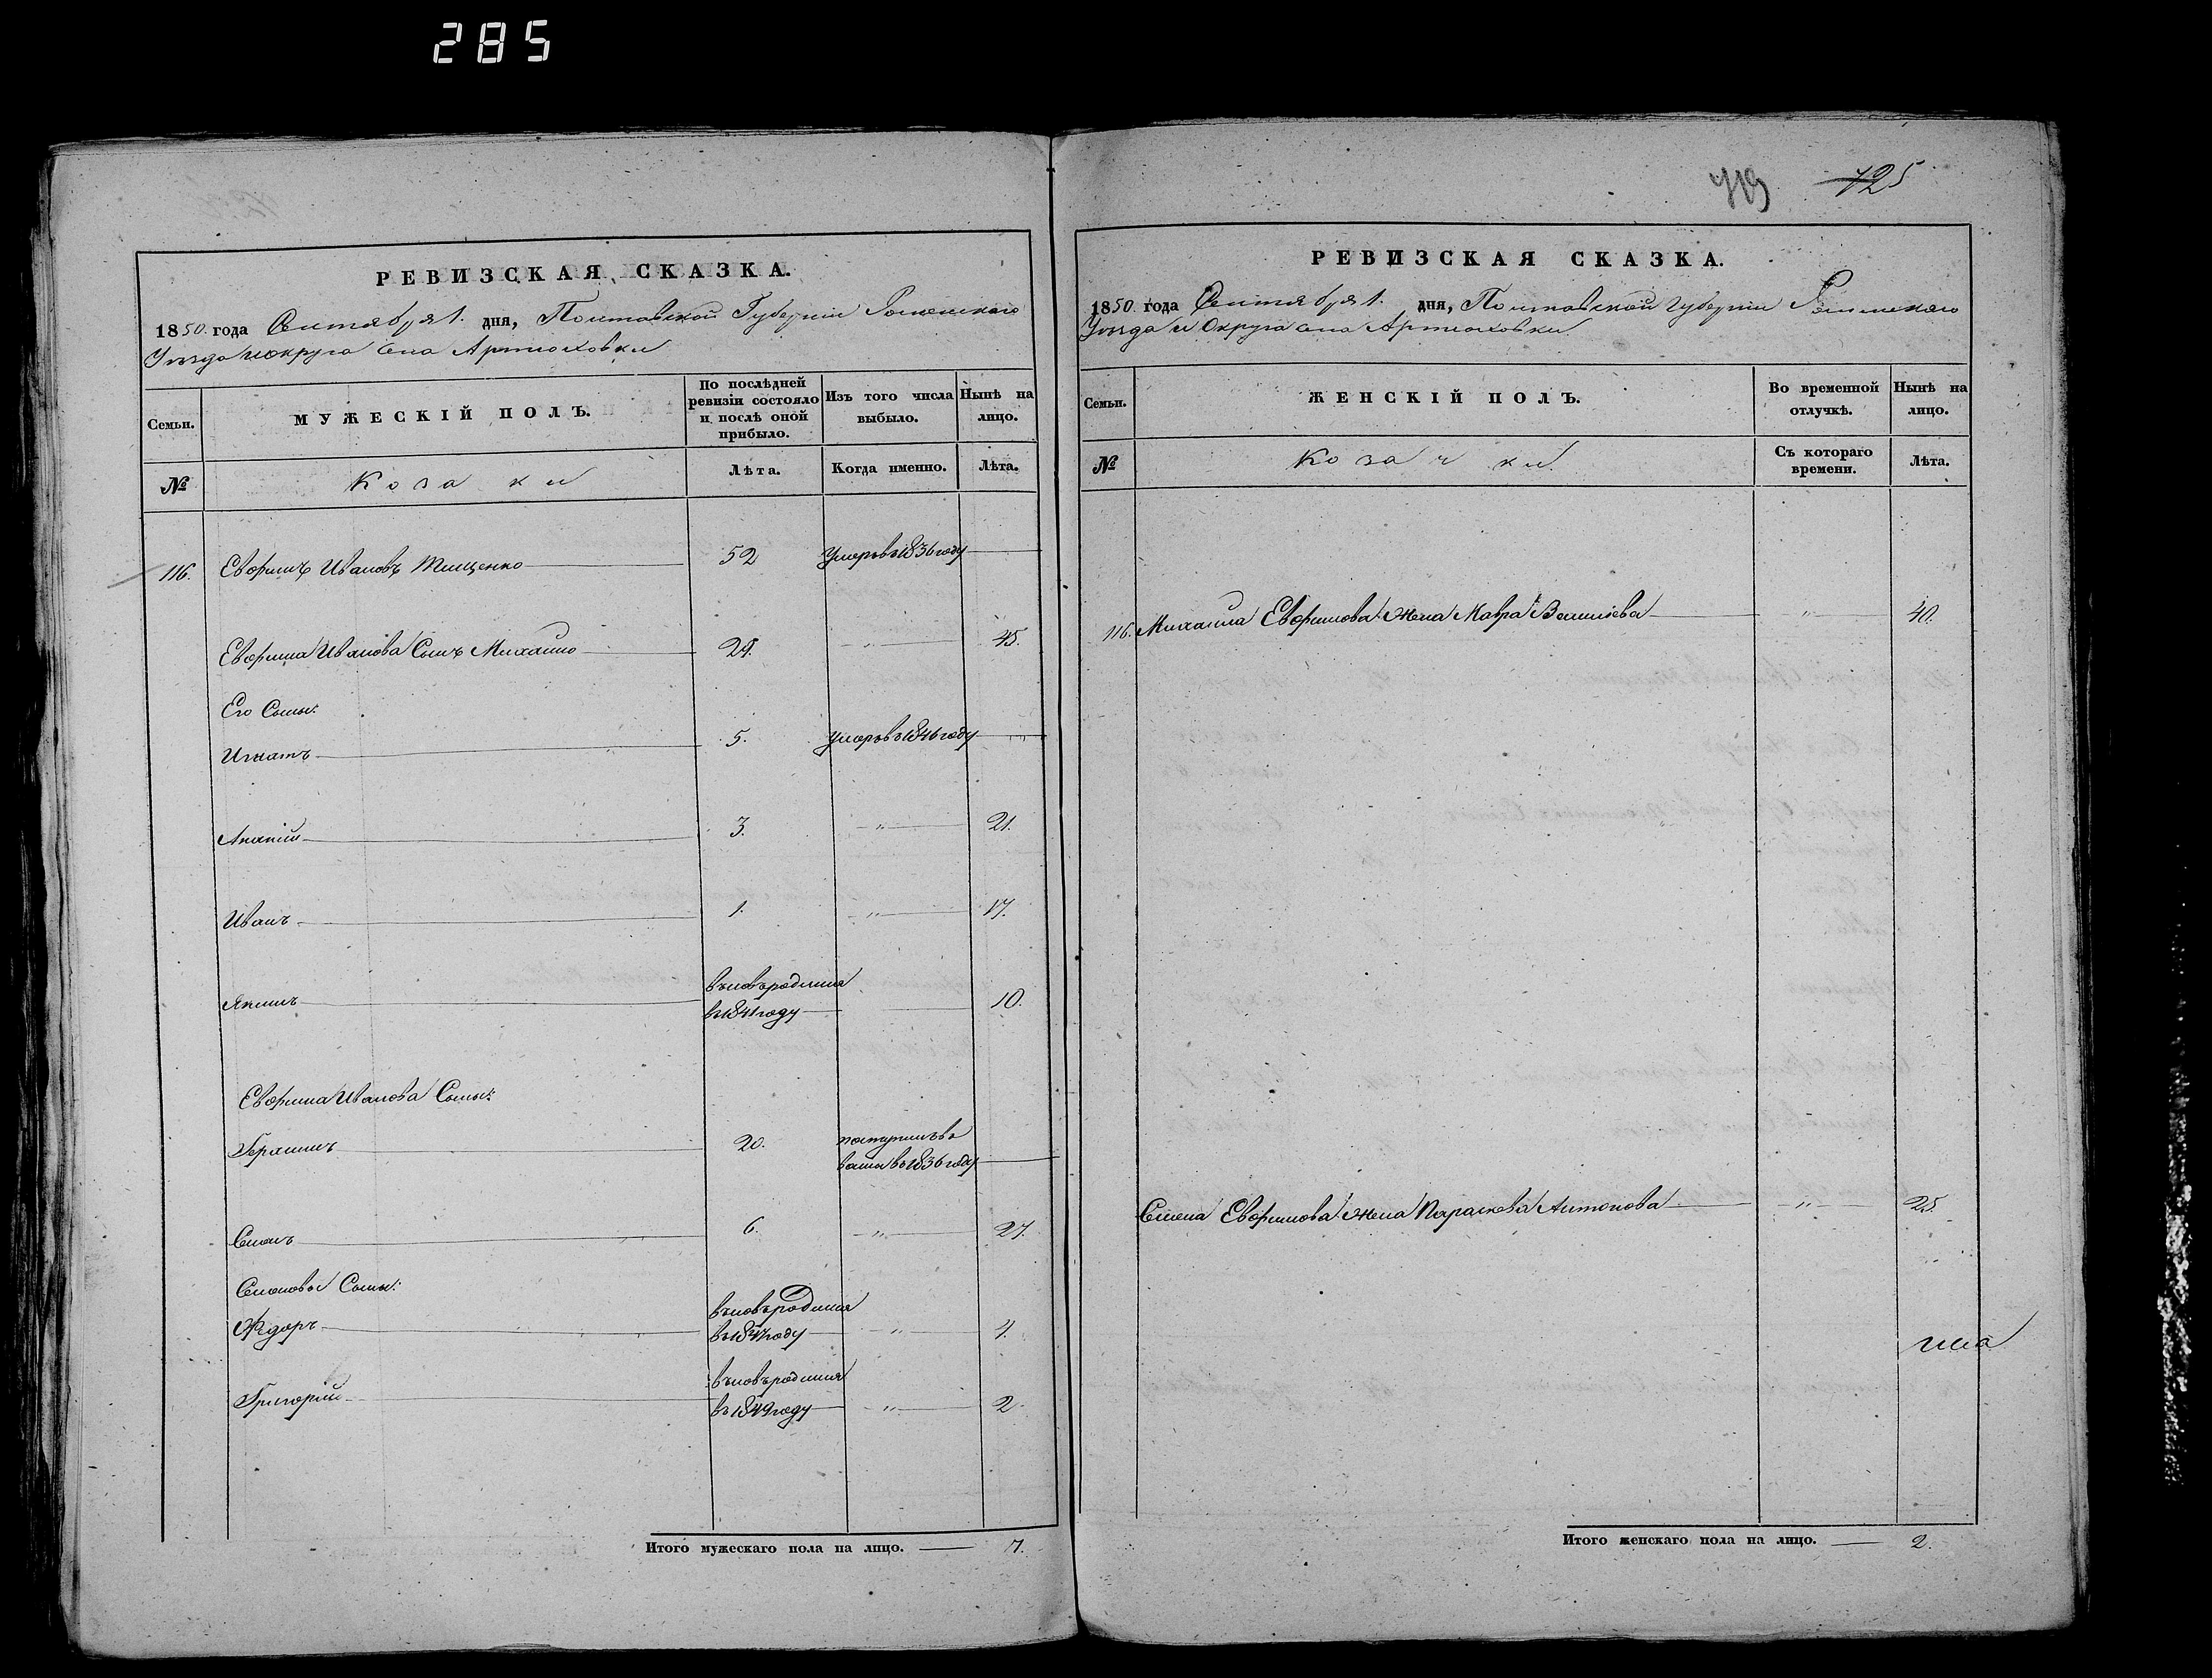 285
719 125
РЕВИЗСКАЯ СКАЗКА.
1850. года Сентября 1. дня, Полтавской Губерніи Роменскаго
Уѣзда и округа села Артюховки
Семьи.
МУЖЕСКІЙ ПОЛЪ.
По послѣдней ревизіи состояло и послѣ оной прибыло.
Изъ того числа выбыло.
Нынѣ на лицо.
№
Козаки
Лѣта.
Когда именно.
Лѣта.
116. Евфимъ Ивановъ Тищенко 52 Умеръ въ 1836 году
Евфима Иванова Сынъ Михайло 29. " 45.
Его Сыны:
Игнатъ 5. умеръ въ 1846 году "
Ананій 3. " 21.
Иванъ 1. " 17.
Якимъ вновь родился
въ 1841 году 10.
Евфима Иванова Сыны:
Герасимъ 20. поступилъ въ
въ 1836 году
Семенъ 6. " 27.
Семеновы Сыны:
Федоръ вновь родился
въ 1847 году " 4.
Григорій вновь родился
въ 1849 году " 2.
Итого мужескаго пола на лицо. 7.
РЕВИЗСКАЯ СКАЗКА.
1850. года Сентября 1. дня, Полтавской губерніи Роменскаго
Уѣзда и Округа села Артюховки
Семьи.
ЖЕНСКІЙ ПОЛЪ.
Во временной отлучкѣ.
Нынѣ на лицо.
№
Козачки.
Съ котораго времени.
Лѣта.
116. Михайла Евфимова жена Мавра Васильева " 40.
Семена Евфимова жена Параскева Антонова " 25
Итого женскаго пола на лицо. 2.